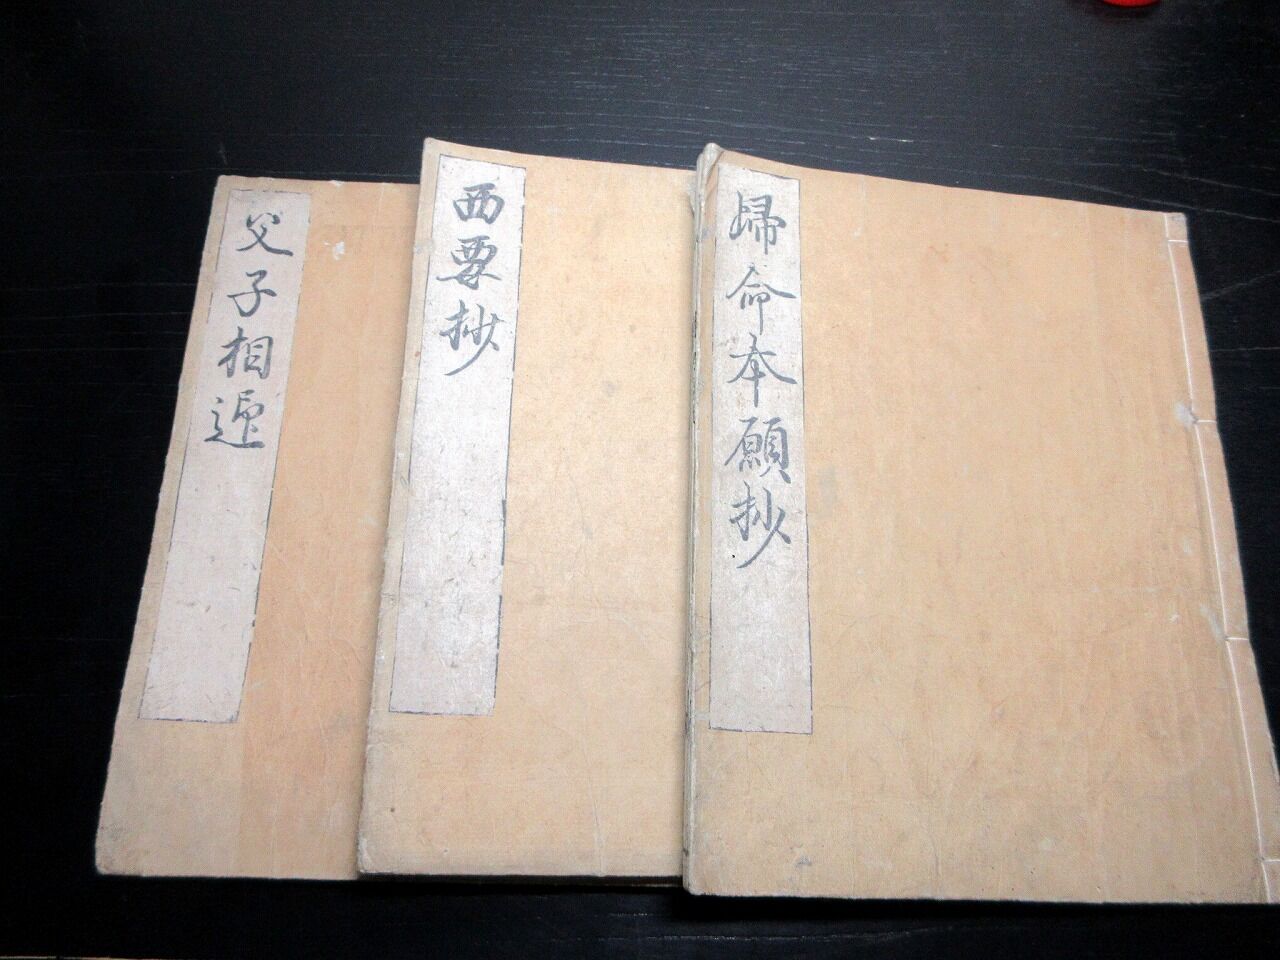 帰命本願抄
西要抄
父子相迎